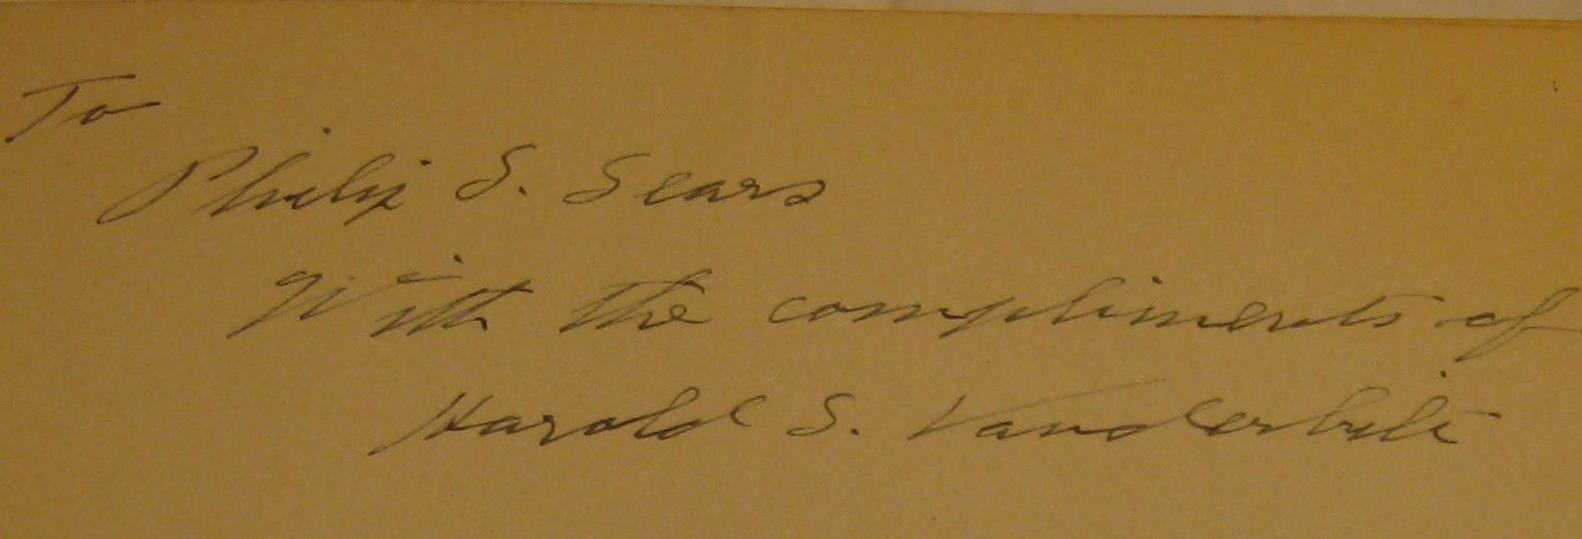 To
Philip S. Sears
With the compliments of
Harold S. Vanderbilt